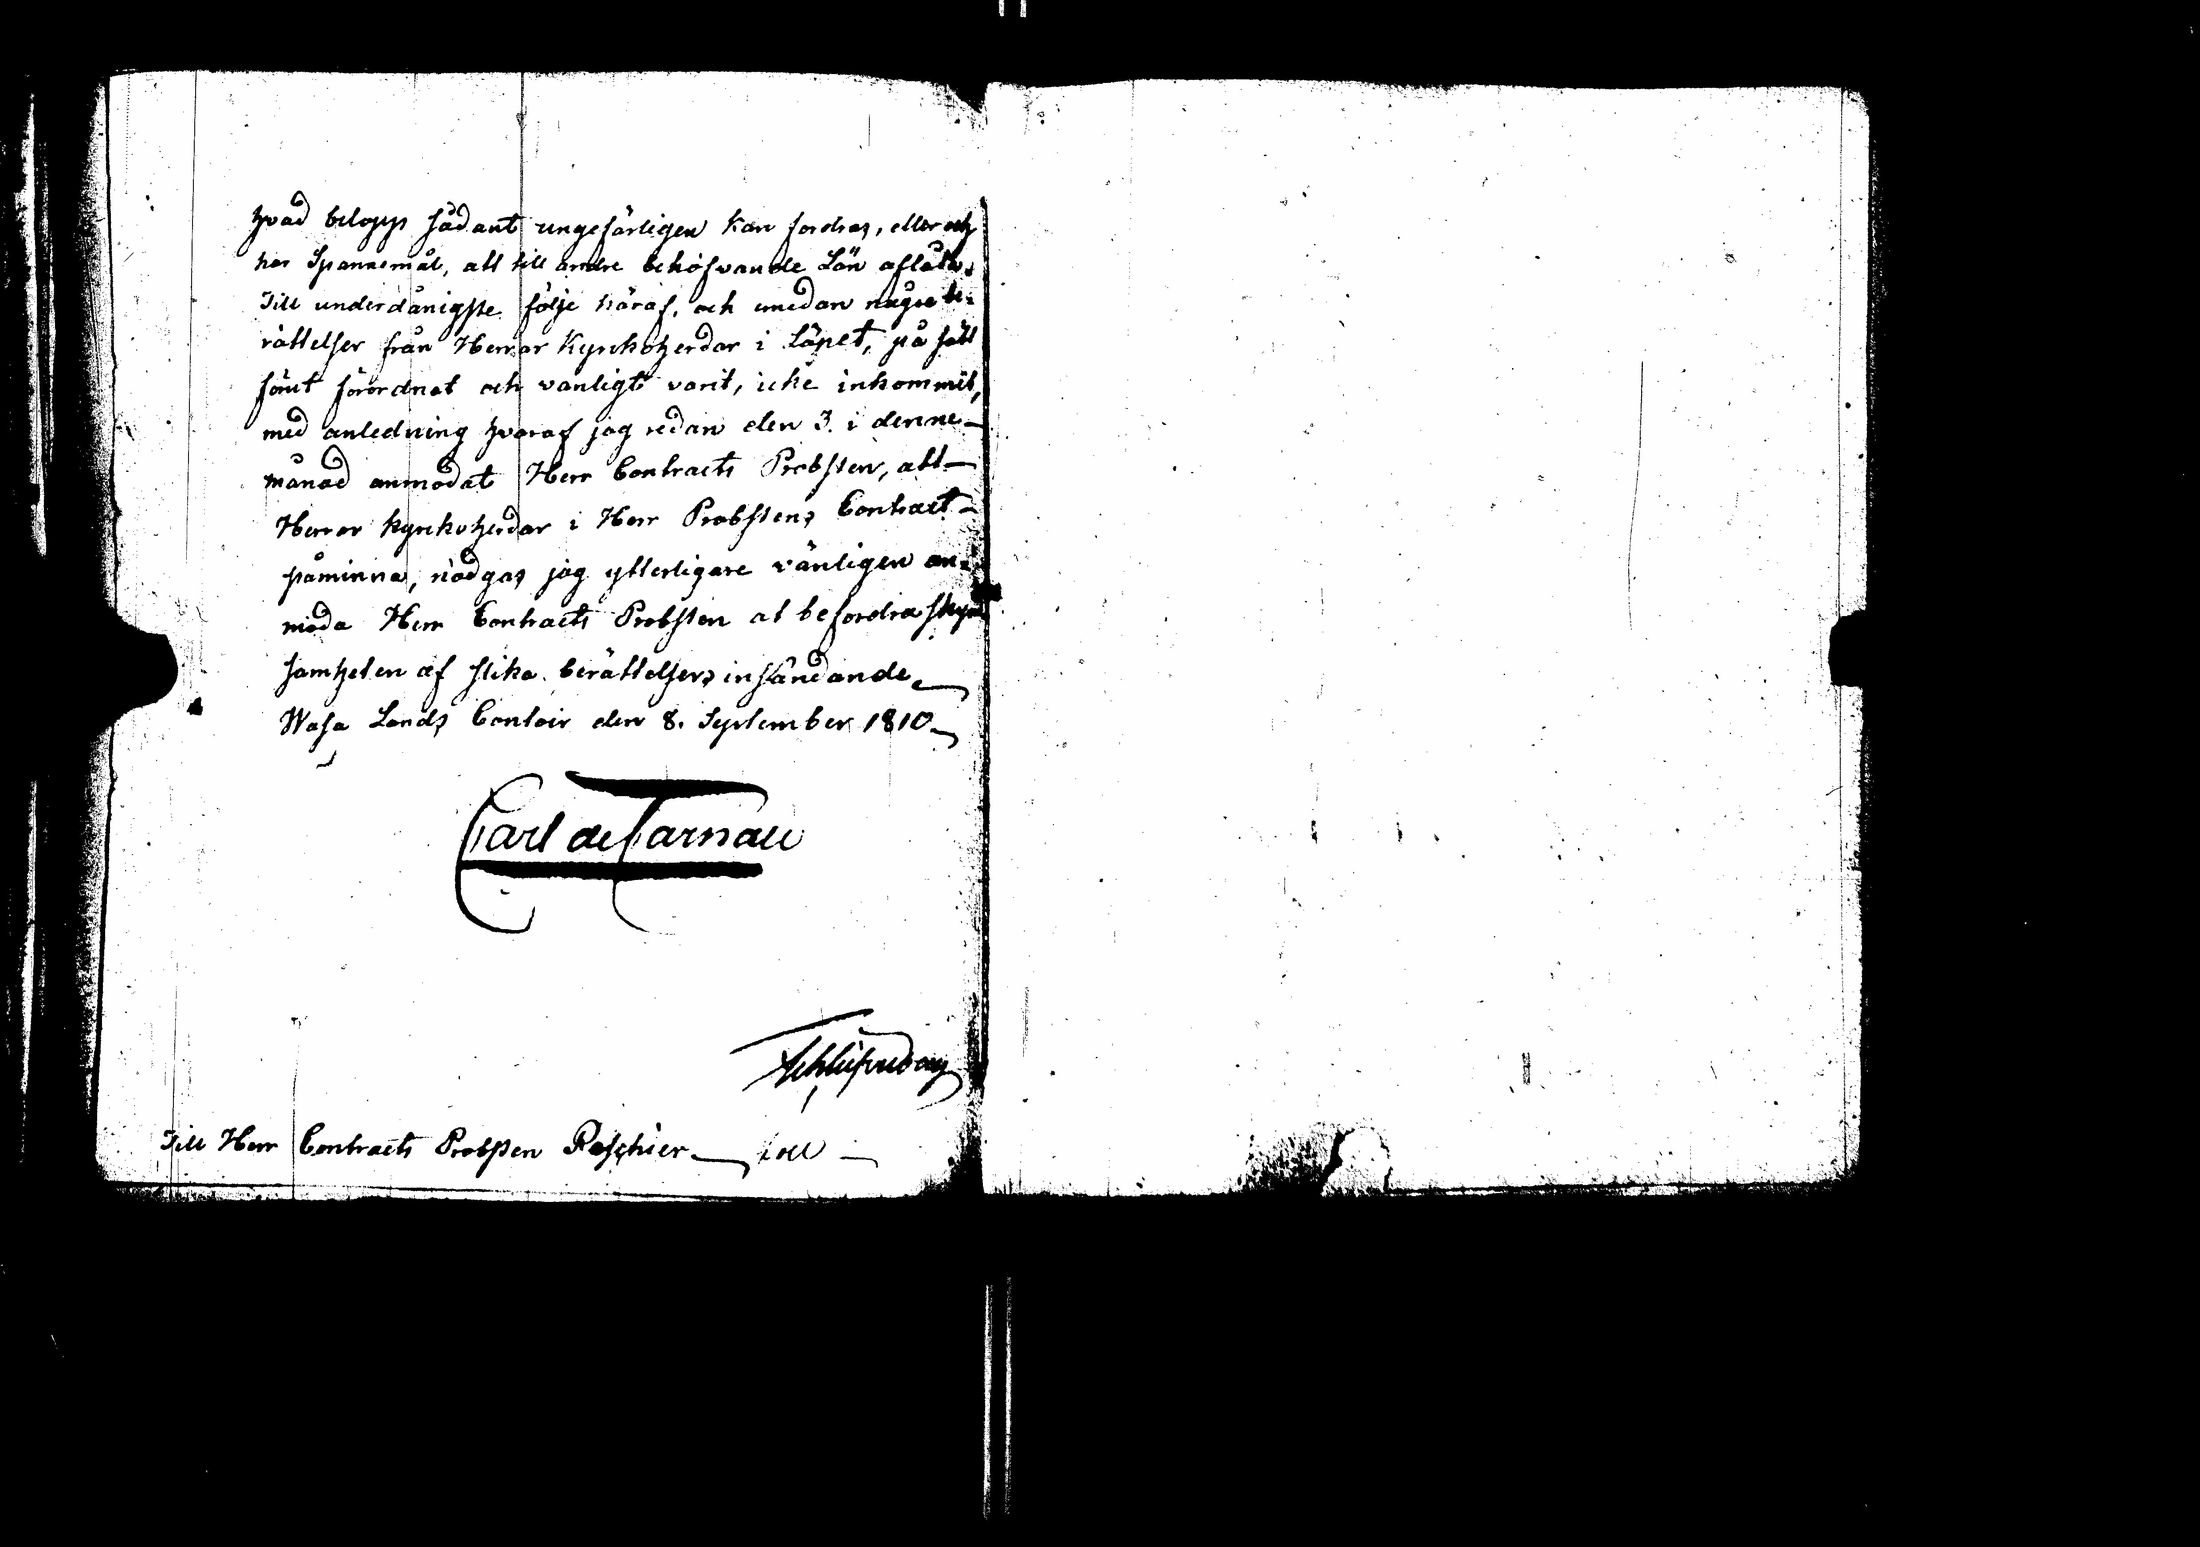 hvad belopp sådant ungefärligen kan fordras, eller och
har Spannemål, att till andre behöfvande Län aflåta.
Till underdånigste följe häraf, och emedan någre be-
rättelser från Herrar Kyrkoherdar i Länet, på sätt
somt förordnat och vanligt varit, icke inkommit,
med anledning hvaraf jag redan den 3. i denne
månad anmodat Herr Contracts Probsten, att
Herrar Kyrkoherdar i Herr Probstens Contract
påminna, nödgas jag ytterligare vänligen an-
moda Herr Contracts Probsten at befordra skynd-
samheten af slika berättelsers insändande
Wasa Lands Contoir den 8. September 1810
Carl de Carnall
Till Herr Contracts Probsten Reschier